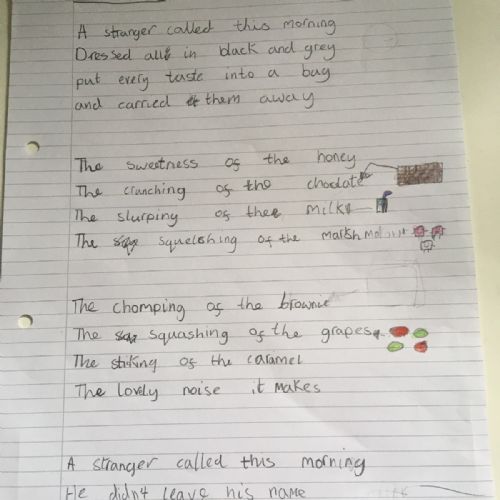 A stranger called this morning
Dressed all in black and grey
put every taste into a bag
and carried them away
The sweetness of the honey
The crunching of the choclate
The slurping of the milk
The squelshing of the marshmallow
The chomping of the brownie
The squashing of the grapes
The stiking of the caramel
The lovely noise it makes
A stranger called this morning
He didn't leave his name